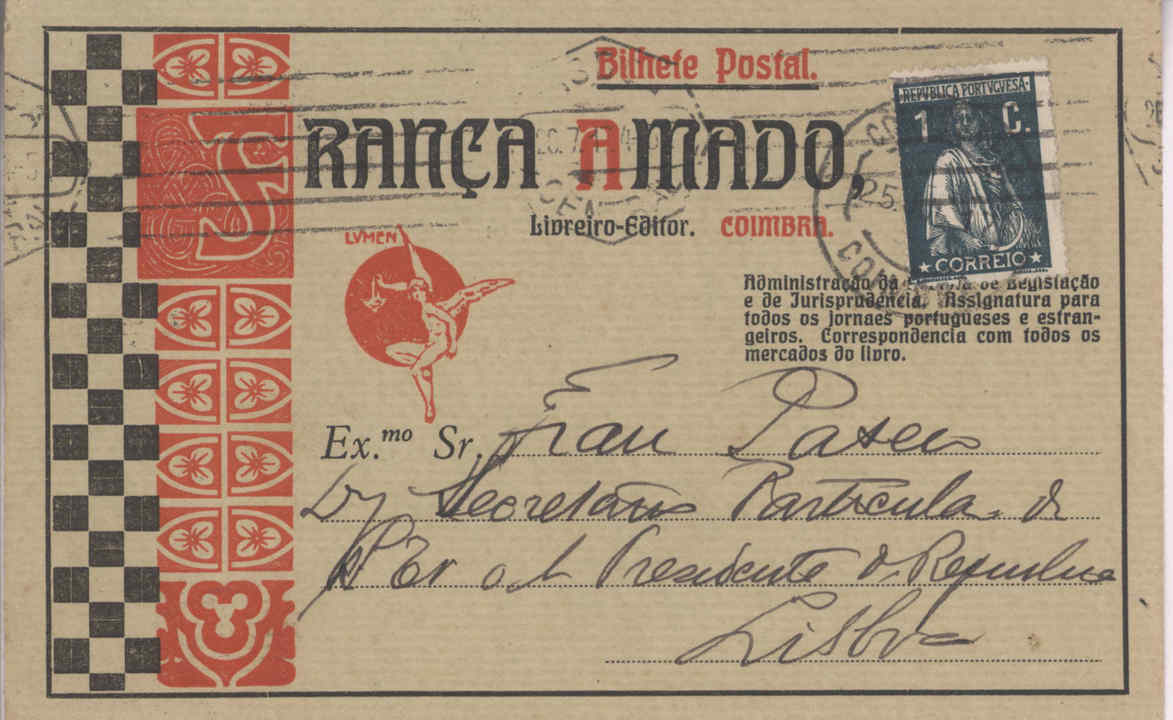 Bilhete Postal.
FRANÇA AMADO,
Livreiro-Editor. COIMBRA.
REPVBLICA PORTVGVESA
1 C.
CORREIO
LVMEN
Administração da de Legislação
e de Jurisprudencia. Assignatura para
todos os jornaes portugueses e estran-
geiros. Correspondencia com todos os
mercados do livro.
Ex.mo Sr.
Secretario Particular de
Presidente d. Republica
Lisboa
CENTRAL
25